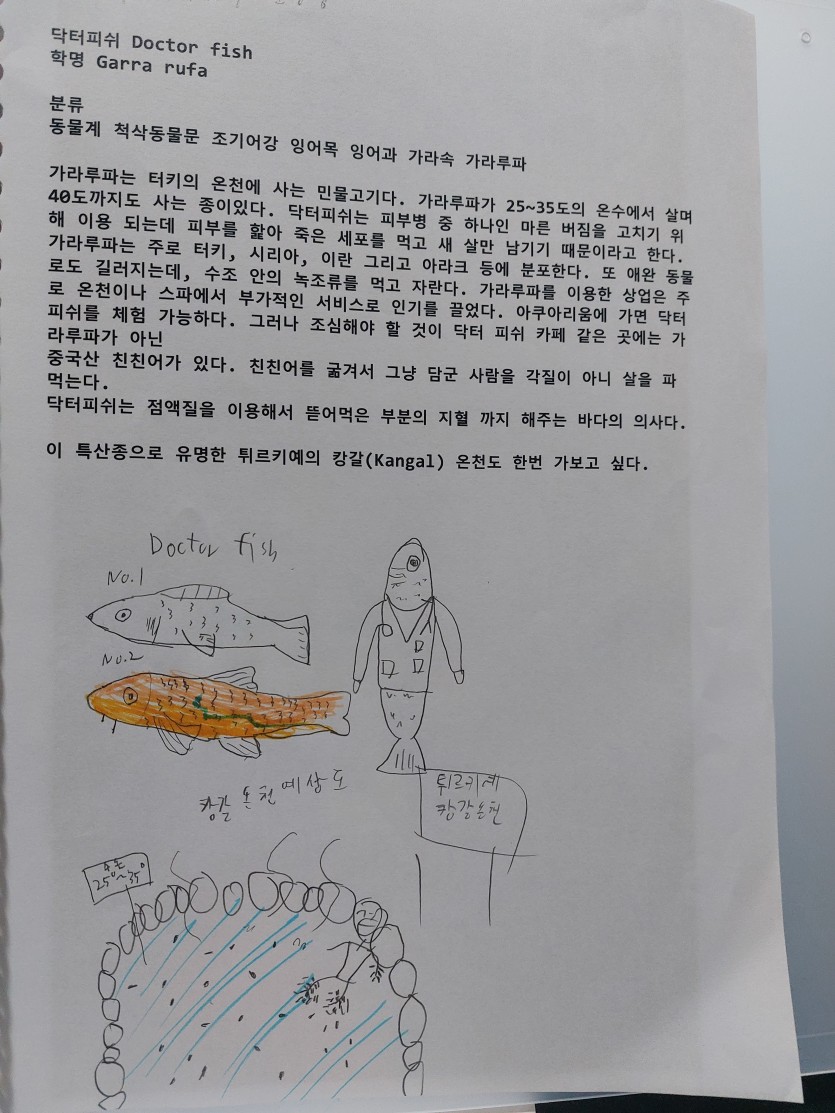 닥터피쉬 Doctor fish
학명 Garra rufa
분류
동물계 척삭동물문 조기어강 잉어목 잉어과 가라속 가라루파
가라루파는 터키의 온천에 사는 민물고기다. 가라루파가 25~35도의 온수에서 살며
40도까지도 사는 종이있다. 닥터피쉬는 피부병 중 하나인 마른 버짐을 고치기 위
해 이용 되는데 피부를 핥아 죽은 세포를 먹고 새 살만 남기기 때문이라고 한다.
가라루파는 주로 터키, 시리아, 이란 그리고 아라크 등에 분포한다. 또 애완 동물
로도 길러지는데, 수조 안의 녹조류를 먹고 자란다. 가라루파를 이용한 상업은 주
로 온천이나 스파에서 부가적인 서비스로 인기를 끌었다. 아쿠아리움에 가면 닥터
피쉬를 체험 가능하다. 그러나 조심해야 할 것이 닥터 피쉬 카페 같은 곳에는 가
라루파가 아닌
중국산 친친어가 있다. 친친어를 굶겨서 그냥 담군 사람을 각질이 아니 살을 파
먹는다.
닥터피쉬는 점액질을 이용해서 뜯어먹은 부분의 지혈 까지 해주는 바다의 의사다.
이 특산종으로 유명한 튀르키예의 캉갈(Kangal) 온천도 한번 가보고 싶다.
Doctor fish
No.1
No.2
캉갈 온천 예상도
튀르키예
캉갈온천
수온
25°~35°